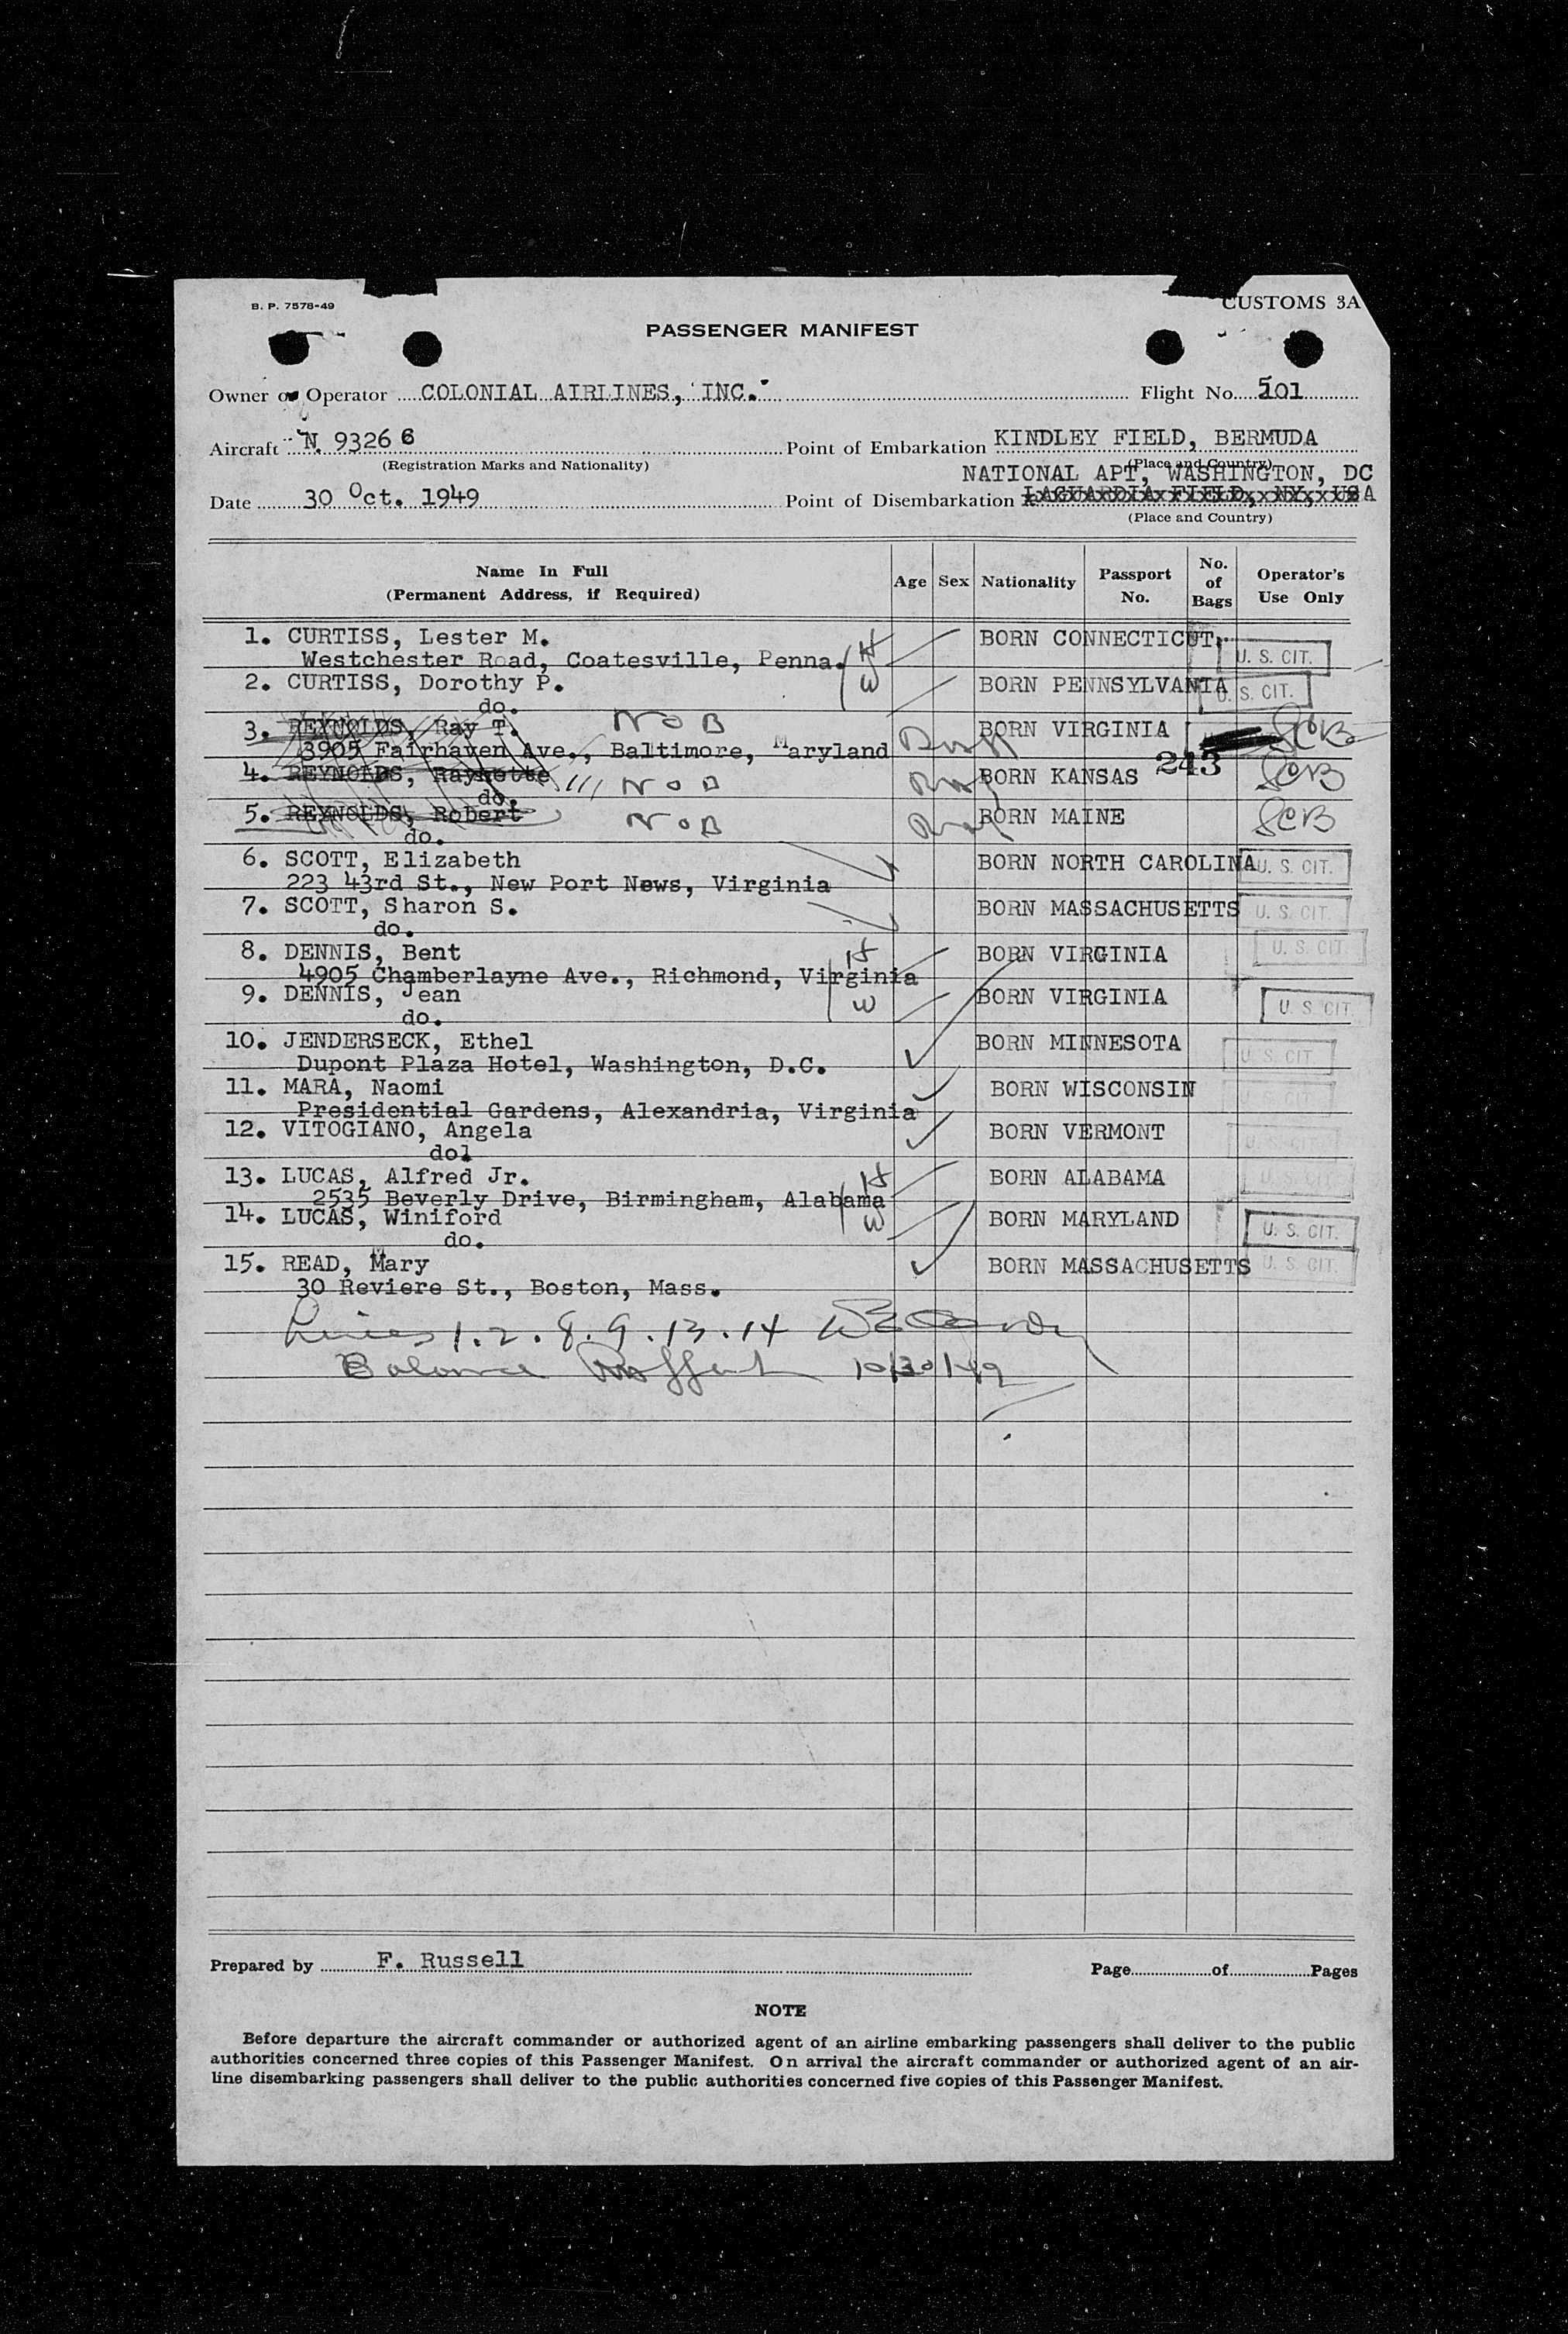 B. P. 7578-49
CUSTOMS 3A
PASSENGER MANIFEST
Owner or Operator COLONIAL AIRLINES, INC. Flight No. 501
Aircraft N. 93266 Point of Embarkation KINDLEY FIELD, BERMUDA
(Registration Marks and Nationality) (Place and Country)
NATIONAL APT, WASHINGTON, DC
Date 30 Oct. 1949 Point of Disembarkation LAGUARDIA FIELD, NY, USA
(Place and Country)
Name In Full (Permanent Address, if Required) Age Sex Nationality Passport No. No. of Bags Operator's Use Only
1. CURTISS, Lester M. H BORN CONNECTICUT. U. S. CIT.
Westchester Road, Coatesville, Penna.
2. CURTISS, Dorothy P. W BORN PENNSYLVANIA U. S. CIT.
do.
3. REYNOLDS, Ray T. NOB BORN VIRGINIA SCB
3905 Fairhaven Ave., Baltimore, Maryland
243
4. REYNOLDS, Raynette NOB BORN KANSAS SCB
do.
5. REYNOLDS, Robert NOB BORN MAINE SCB
do.
6. SCOTT, Elizabeth BORN NORTH CAROLINA U. S. CIT.
223 43rd St., New Port News, Virginia
7. SCOTT, Sharon S. BORN MASSACHUSETTS U. S. CIT.
do.
8. DENNIS, Bent H BORN VIRGINIA U. S. CIT.
4905 Chamberlayne Ave., Richmond, Virginia
9. DENNIS, Jean W BORN VIRGINIA U. S. CIT.
do.
10. JENDERSECK, Ethel BORN MINNESOTA U. S. CIT.
Dupont Plaza Hotel, Washington, D.C.
11. MARA, Naomi BORN WISCONSIN U. S. CIT.
Presidential Gardens, Alexandria, Virginia
12. VITOGIANO, Angela BORN VERMONT U. S. CIT.
dol
13. LUCAS, Alfred Jr. H BORN ALABAMA U. S. CIT.
2535 Beverly Drive, Birmingham, Alabama
14. LUCAS, Winiford W BORN MARYLAND U. S. CIT.
do.
15. READ, Mary BORN MASSACHUSETTS U. S. CIT.
30 Reviere St., Boston, Mass.
Lines 1. 2. 8. 9. 13. 14
Balance 10/30/49
Prepared by F. Russell Page of Pages
NOTE
Before departure the aircraft commander or authorized agent of an airline embarking passengers shall deliver to the public
authorities concerned three copies of this Passenger Manifest. On arrival the aircraft commander or authorized agent of an air-
line disembarking passengers shall deliver to the public authorities concerned five copies of this Passenger Manifest.